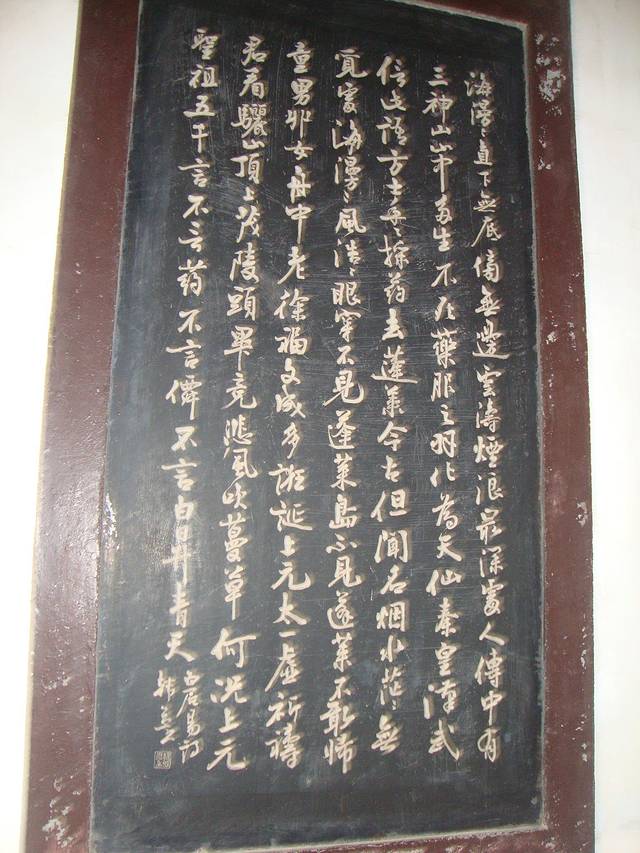 海漫〻直下无底傍無邊雲濤煙浪最深處人傳中有
三神山山中多生不死藥服之羽化為天仙秦皇漢武
信此語方士年〻採药去蓬萊今古但聞名烟水茫〻無
覓處海漫〻風浩〻眼穿不見蓬萊島不見蓬萊不敢歸
童男丱女舟中老徐福文成多誑誕上元太一虛祈禱
君看驪山頂上茂陵頭畢竟悲風吹蔓草何況上元
聖祖五千言不言药不言僊不言白日昇青天
白居易詩